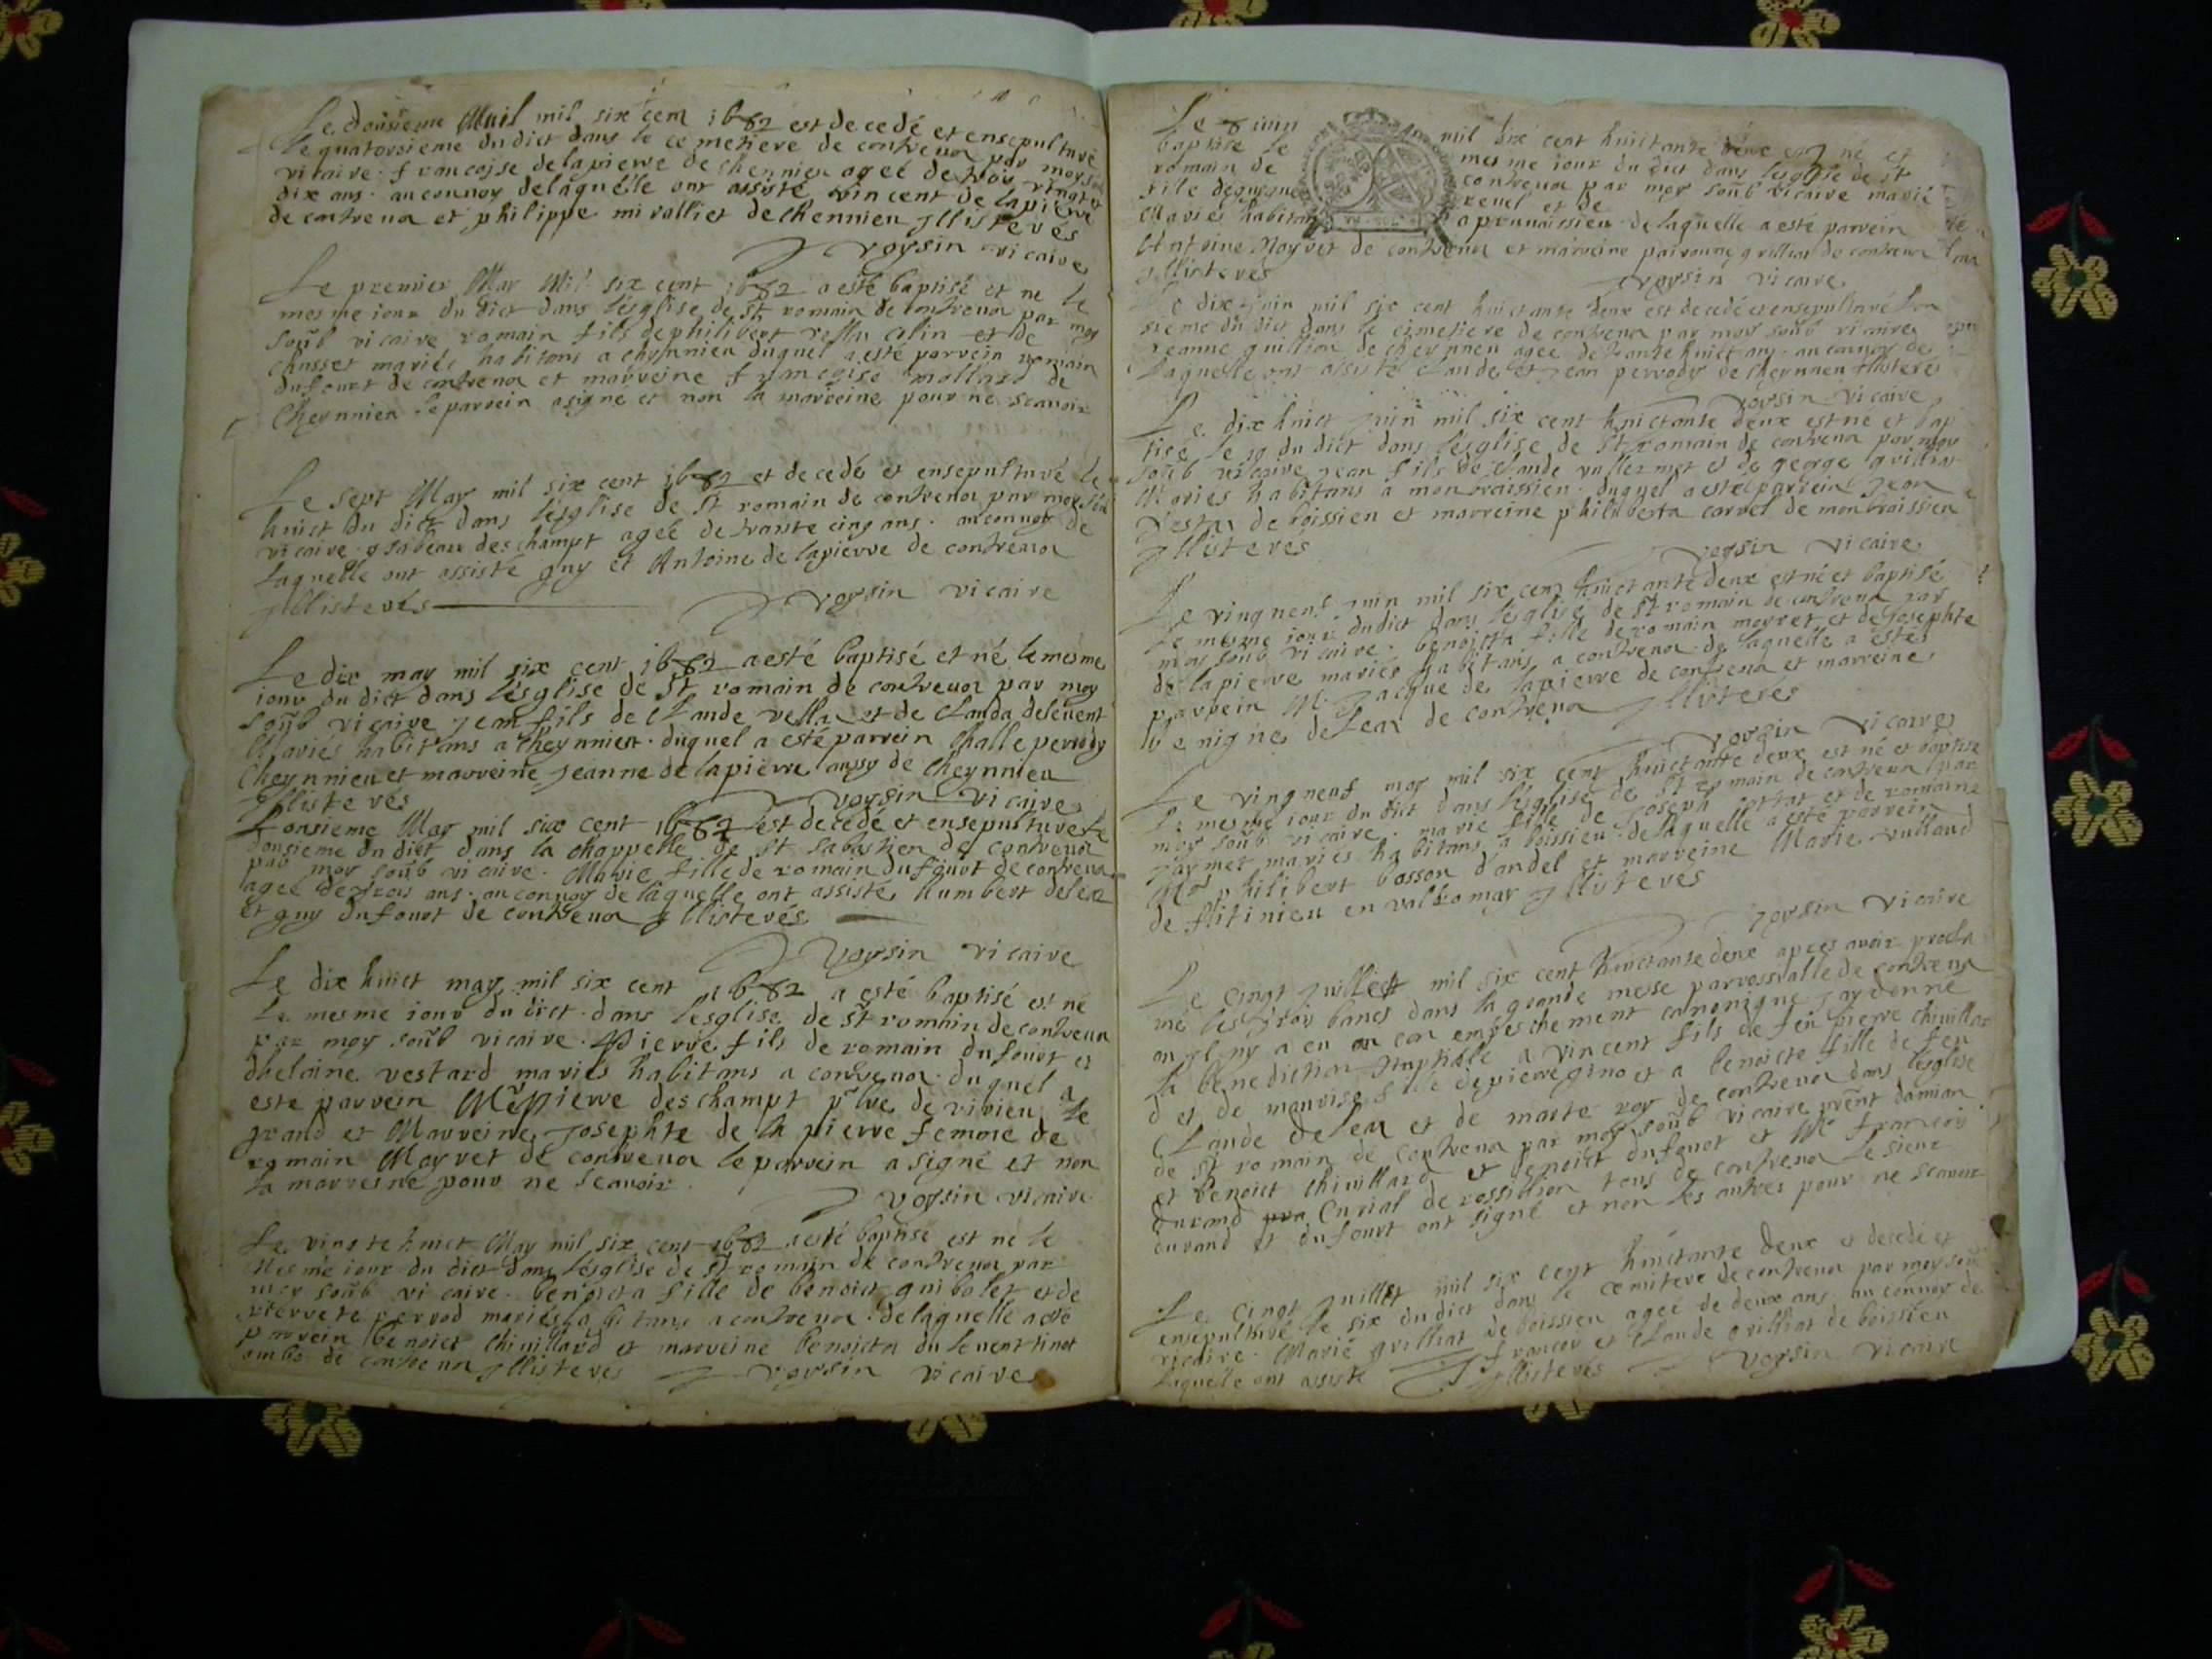 Le dousieme Auil mil six cent 1682 est decedé et ensepulturé
le quatorsieme du dict dans le cemetiere de contrevoz par moy soub
vicaire francoise de la pierre de chennieu ageé de trois vingt et
dix ans. au connoy delaquelle ont assisté vincent de lapierre
de contrevoz et philippe miralliet de chennieu Illisterés
voysin vicaire
Le premier May Mil six cent 1682 a esté baptisé et ne le
mesme iour du dict dans lesglise de st romain de contrevoz par moy
soub vicaire romain fils de philibert et de
chasset mariés habitans a cheynnieu duquel a esté parrein romain
dufourt de contrevoz et marreine francoise mollard de
Cheynnieu le parrein a signé et non la marreine pour ne scavoir
Le sept May mil six cent 1682 et decedé et ensepulturé le
huict du dict dans lesglise de st romain de contrevoz par moy soub
vicaire ysabeau deschampt ageé de trante cinq ans. au connoy de
laquelle ont assisté guy et Antoine de lapierre de contrevoz
Illisterés voysin vicaire
Le dix may mil six cent 1682 a esté baptisé et né le mesme
iour du dict dans lesglise de st romain de contrevoz par moy
soub vicaire Jean fils de Claude vella et de Clauda deleuent
Mariés habitans a cheynnieu. duquel a esté parrein Challe perrody
Cheynnieu et marreine Jeanne de lapierre aussy de Cheynnieu
Illisterés voysin vicaire
Lonsieme May mil six cent 1682 est decedé et ensepulturé le
dousieme du dict dans la chappelle de st sabastien de contrevoz
par moy soub vicaire. Marie fille de romain dufourt de contrevoz
ageé de trois ans. au connoy de laquelle ont assisté humbert delea
et guy dufourt de contrevoz Illisterés
voysin vicaire
Le dix huict may mil six cent 1682 a esté baptisé est né
Le mesme iour du dict. dans lesglise de st romain de contrevoz
par moy soub vicaire. Pierre fils de romain dufourt et
dhelaine vestard mariés habitans a contrevoz. duquel a
este parrein Mre Pierre deschampt pbre de virieu le
grand et Marreine Josephte de la pierre femme de
romain Moyret de contrevoz le parrein a signé et non
la marreine pour ne scavoir.
voysin vicaire
Le vingte huict May mil six cent 1682 a esté baptisé est né le
Mesme iour du dict dans lesglise de st romain de contrevoz par
moy soub vicaire. benoicta fille de benoict guibolet et de
pierrete perrod mariés habitans a contrevoz. delaquelle a esté
parrein benoict Chivillard et marreine benoicta du
de contrevoz Illisterés voysin vicaire
Le 8 iuin mil six cent huictante deux est né et
baptisé le mesme iour du dict dans lesglise de st
romain de contrevoz par moy soub vicaire marie
fille de revel et de
Mariés habitans a prunaissieu. de laquelle a esté parrein
Antoine Moyret de contrevoz et marreine grilliat de contrevoz
Illisterés voysin vicaire
Le dix Juin mil six cent huictante deux est decedé et ensepulturé
sieme du dict dans le cimetiere de contrevoz par moy soub vicaire
Jeanne guillion de cheynnieu ageé de trante huict ans. au connoy de
Laquelle ont assisté Claude et Jean perrody de cheynnieu Illisteré
voysin vicaire
Le dix huict Juin mil six cent huictante deux est né et bap
tisé le 19 du dict dans lesglise de st romain de contrevoz par moy
soub vicaire Jean fils de Claude vullermet et de george grilliat
Mariés habitans a monbraissieu. duquel a esté parrein Jean
de boissieu et marreine philiberta carrel de monbraissieu
Illisterés voysin vicaire
Le vingneuf Juin mil six cent huictante deux est né et baptisé
Le mesme iour du dict dans lesglise de st romain de contrevoz par
moy soub vicaire. benoitta fille de romain moyret et de Josephte
de lapierre mariés habitans a contrevoz. de laquelle a estés
parrein M. Jacque de lapierre de contrevoz et marreine
benigne delear de contrevoz Illisterés
voysin vicaire
Le vingneuf may mil six cent huictante deux est né et baptisé
le mesme iour du dict dans lesglise de st romain de contrevoz par
moy soub vicaire. marie fille de Joseph et de romaine
Jaymet mariés habitans a boissieu. de laquelle a esté parrein
Mre philibert bosson dandel et marreine Marie vulland
de flitinieu en valromay Illisterés
voysin vicaire
Le cinqt Juillet mil six cent huictante deux apres avoir procla
mé les trois bancs dans la grande messe parrossialle de contrevoz
ou il ny a eu aucon empeschement canonique Jay donné
la benediction Nuptialle a vincent fils de feu pierre chivillar
d et de mourise fille de pierre gino et a benoicte fille de feu
Claude delea et de marte roy de contrevoz dans lesglise
de st romain de contrevoz par moy soub vicaire prent damian
et benoict chivillard et benoict dufourt et Mr francois
durand curial de rossillion tous de contrevoz le sieur
durand et dufourt ont signé et non les autres pour ne scavoir
Le cinqt Juillet mil six cent huictante deux et decedé et
ensepulturé le six du dict dans le cemitere de contrevoz par moy soub
vicaire. Marie grilliat de boissieu ageé de deux ans. au connoy de
laquelle ont assisté francoy et Claude grilliat de boissieu
Illisterés voysin vicaire